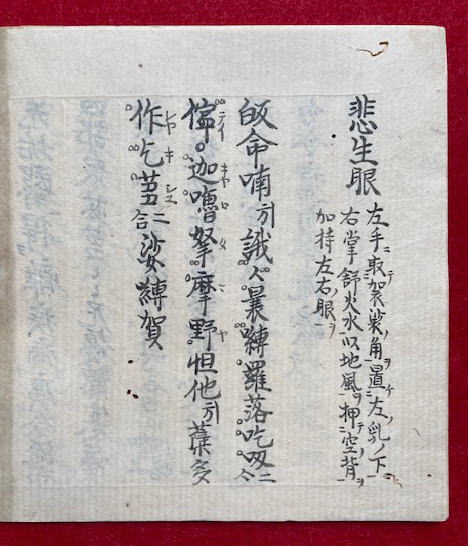 悲生眼
左手ニ取テ袈裟ノ角ヲ置ケ左ノ乳ノ下ニ
右掌舒火水以地風ヲ押テ空ノ背ヲ
加持左右ノ眼ヲ
皈命喃引誐々曩縛羅落吃叉二合
儜迦嚕拏摩野怛他引蘖多
作乞蒭二合娑縛賀